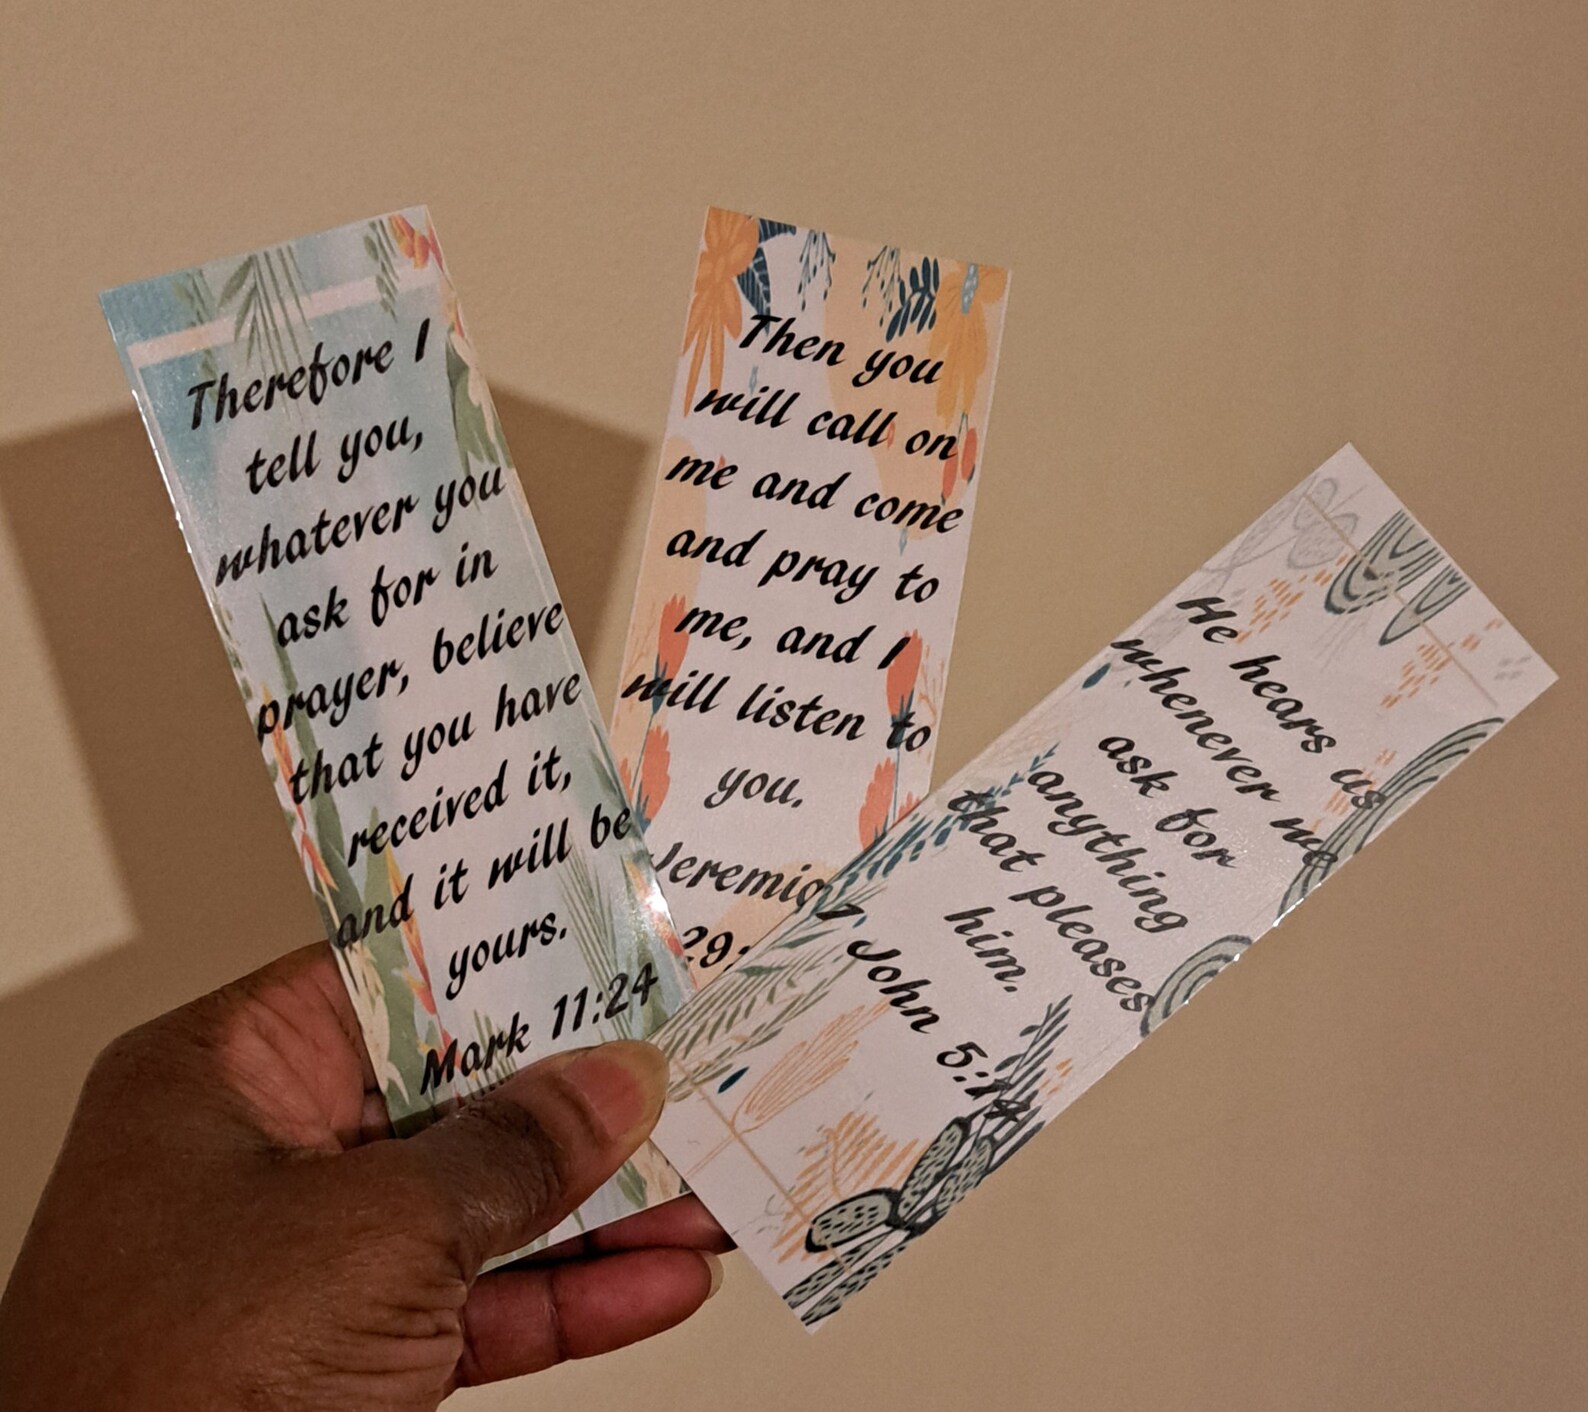 Therefore I
tell you,
whatever you
ask for in
prayer, believe
that you have
received it,
and it will be
yours.
Mark 11:24
Then you
will call on
me and come
and pray to
me, and I
will listen to
you.
Jeremia
29:
He hears us
whenever we
ask for
anything
that pleases
him.
1 John 5:14